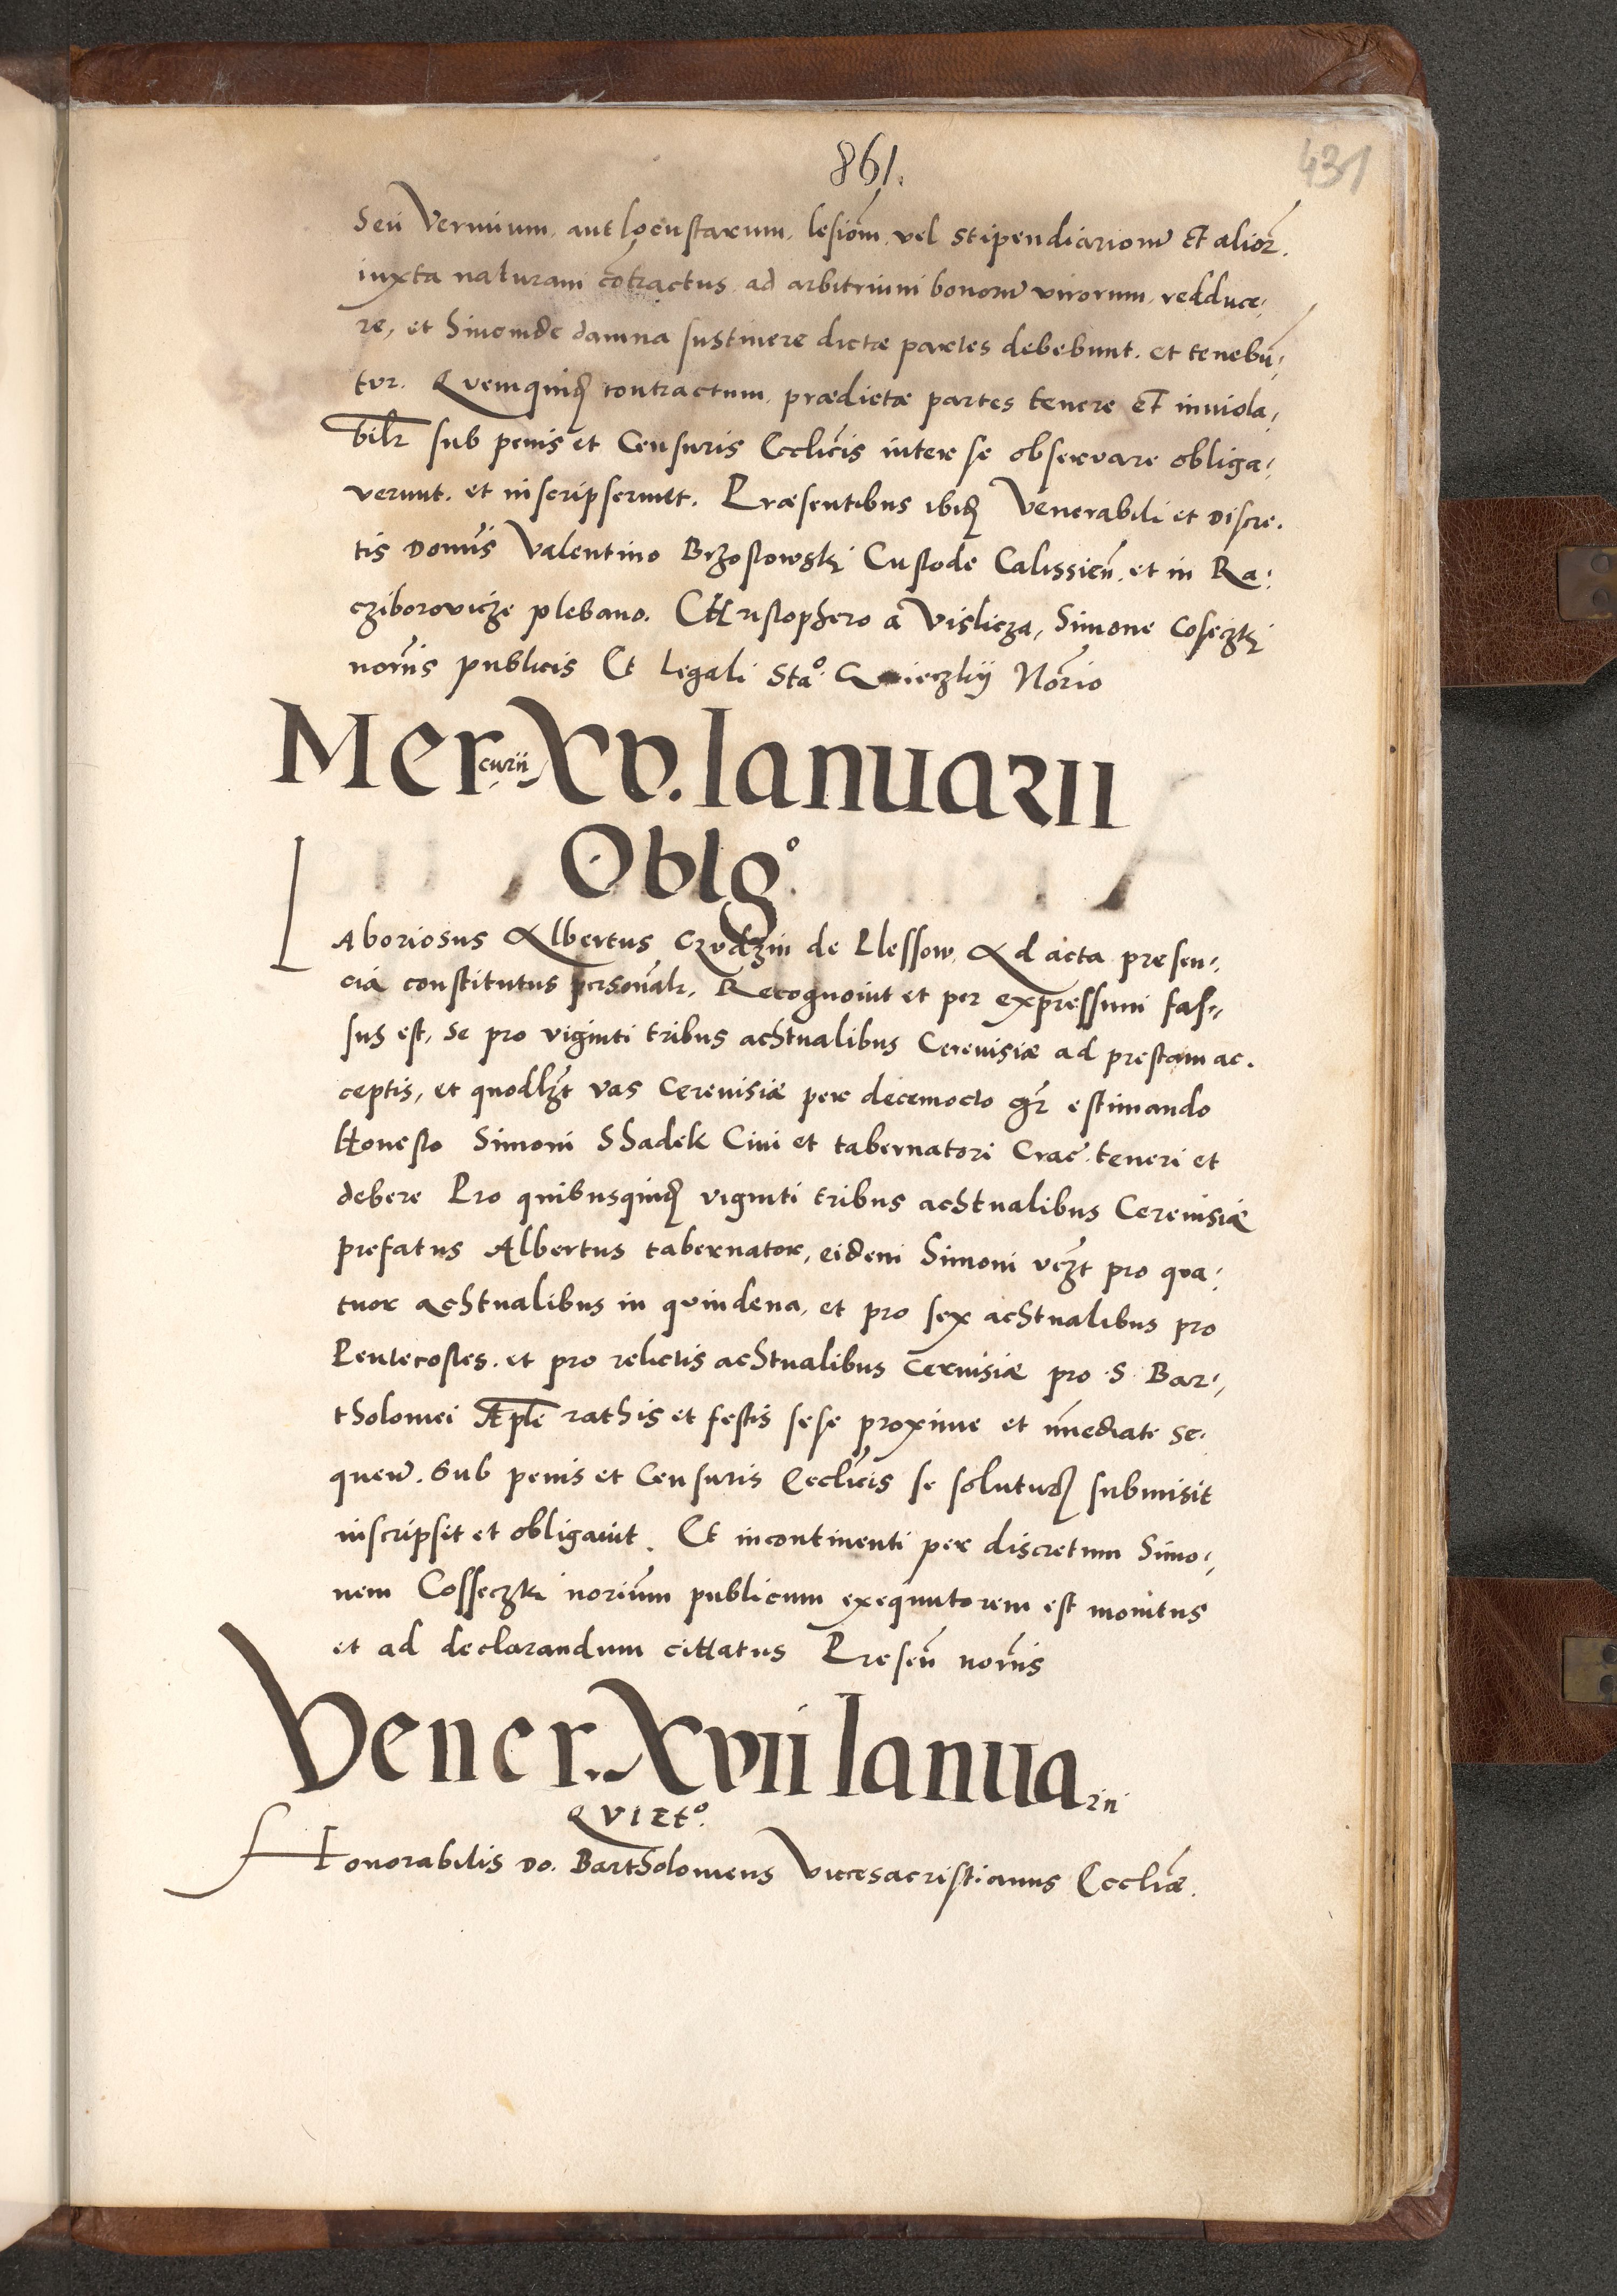 861.
431
Seu Vermium, aut locustarum, lesiom̃, vel stipendiariorũ Et alior̃.
iuxta naturam cõtractus, ad arbitrium bonorũ virorum, redduce,
re, et huiomõe damna sustinere dictæ partes debebunt. et tenebũ,
tur. Quemquidẽ contractum, prædictæ partes tenere et inuiola,
bilr̃ sub penis et Censuris Ecclicis inter se observare obliga,
verunt. et inscripserunt. Præsentibus ibidẽ Venerabili et Discre,
tis Domĩs Valentino Brzostowskį Custode Calissieñ. et in Ra,
cziborovicze plebano. CHristophero a Vislicza, Simone Coseczkį
norĩis publicis Et Legali Sta° Nor̃io
Mercurii XV. Ianuarii
Oblg°.
LAboriosus Albertus Czudzin de Plessow, Ad acta presen,
cia constitutus personalr̃, Recognouit et per expressum fas,
sus est, se pro viginti tribus achtualibus Cereuisiæ ad prestam ac,
ceptis, et quodlz̃t vas Cereuisiæ per decemocto gr̃ estimando
Honesto Simoni Shadek Ciui et tabernatori Crac̃. teneri et
debere Pro quibusquidẽ viginti tribus achtualibus Cereuisiæ
prefatus Albertus tabernator, eidem Simoni vcz̃t pro qua,
tuor achtualibus in quindena, et pro sex achtualibus pro
Pentecostes. et pro relictis achtualibus Cereuisiæ pro S. Bar,
tholomei Apli rathis et festis sese proxime et im̃ediate se,
queñ. Sub penis et Censuris Ecclicis se soluturũ submisit
inscripsit et obligauit. Et incontinenti per discretum Simo,
nem Cosseczki norium̃ publicum exequutorem est monitus
et ad declarandum cittatus Preseñ norĩis
Vener. XVII Ianuarii
QVIET°.
Honorabilis Do. Bartholomeus Vicesacristianus Eccliæ.